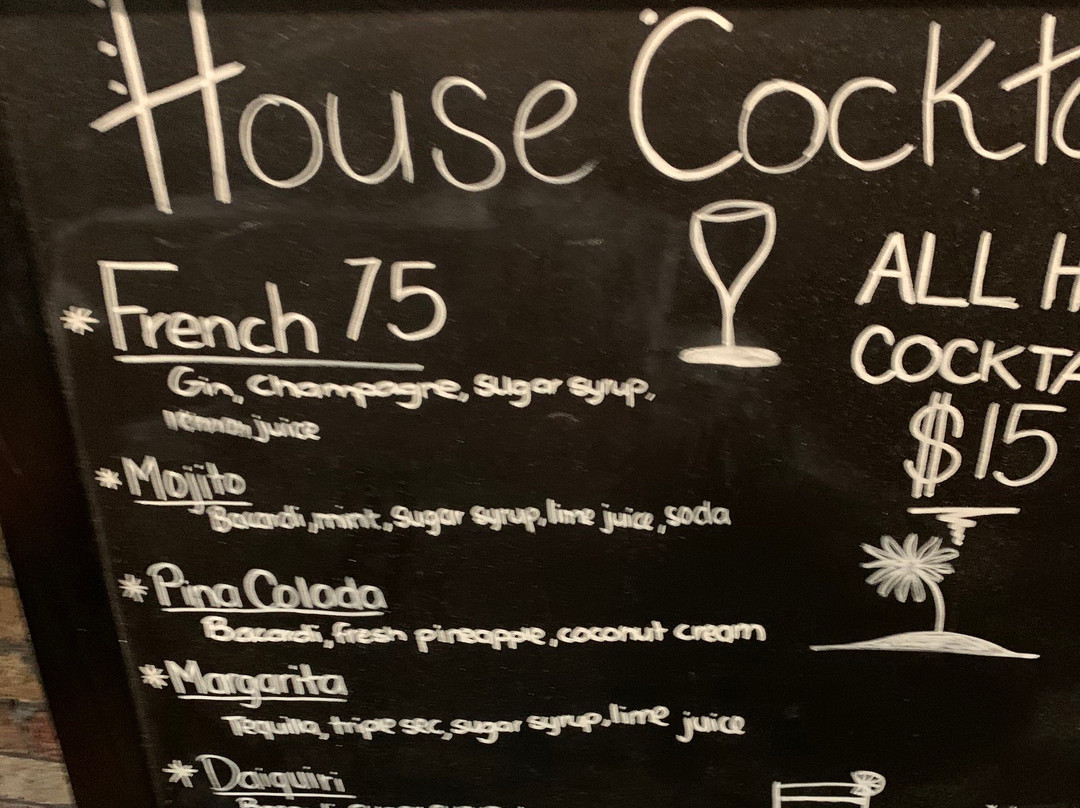 House Cockta
* French 75
Gin, Champagne, sugar syrup,
lemon juice
* Mojito
Bacardi, mint, sugar syrup, lime juice, soda
* Pina Colada
Bacardi, fresh pineapple, coconut cream
* Margarita
Tequila, triple sec, sugar syrup, lime juice
* Daiquiri
ALL H
COCKTA
$15